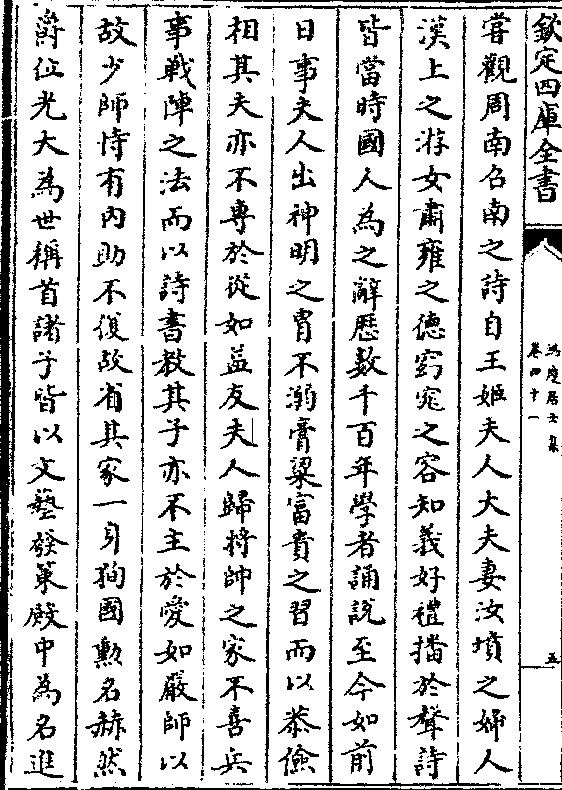 欽定四庫全書
鴻慶居士集
卷四十一
五
嘗觀周南召南之詩自王姬夫人大夫妻汝墳之婦人
漢上之游女肅雍之德窈窕之容知義好禮播於聲詩
皆當時國人為之辭歴數千百年學者誦説至今如前
日事夫人出神明之胄不溺膏粱富貴之習而以恭儉
相其夫亦不專於從如益友夫人歸將帥之家不喜兵
事戰陣之法而以詩書教其子亦不主於愛如嚴師以
故少師恃有內助不復故省其家一身狥國勲名赫然
爵位光大為世稱首諸子皆以文藝發策殿中為名進